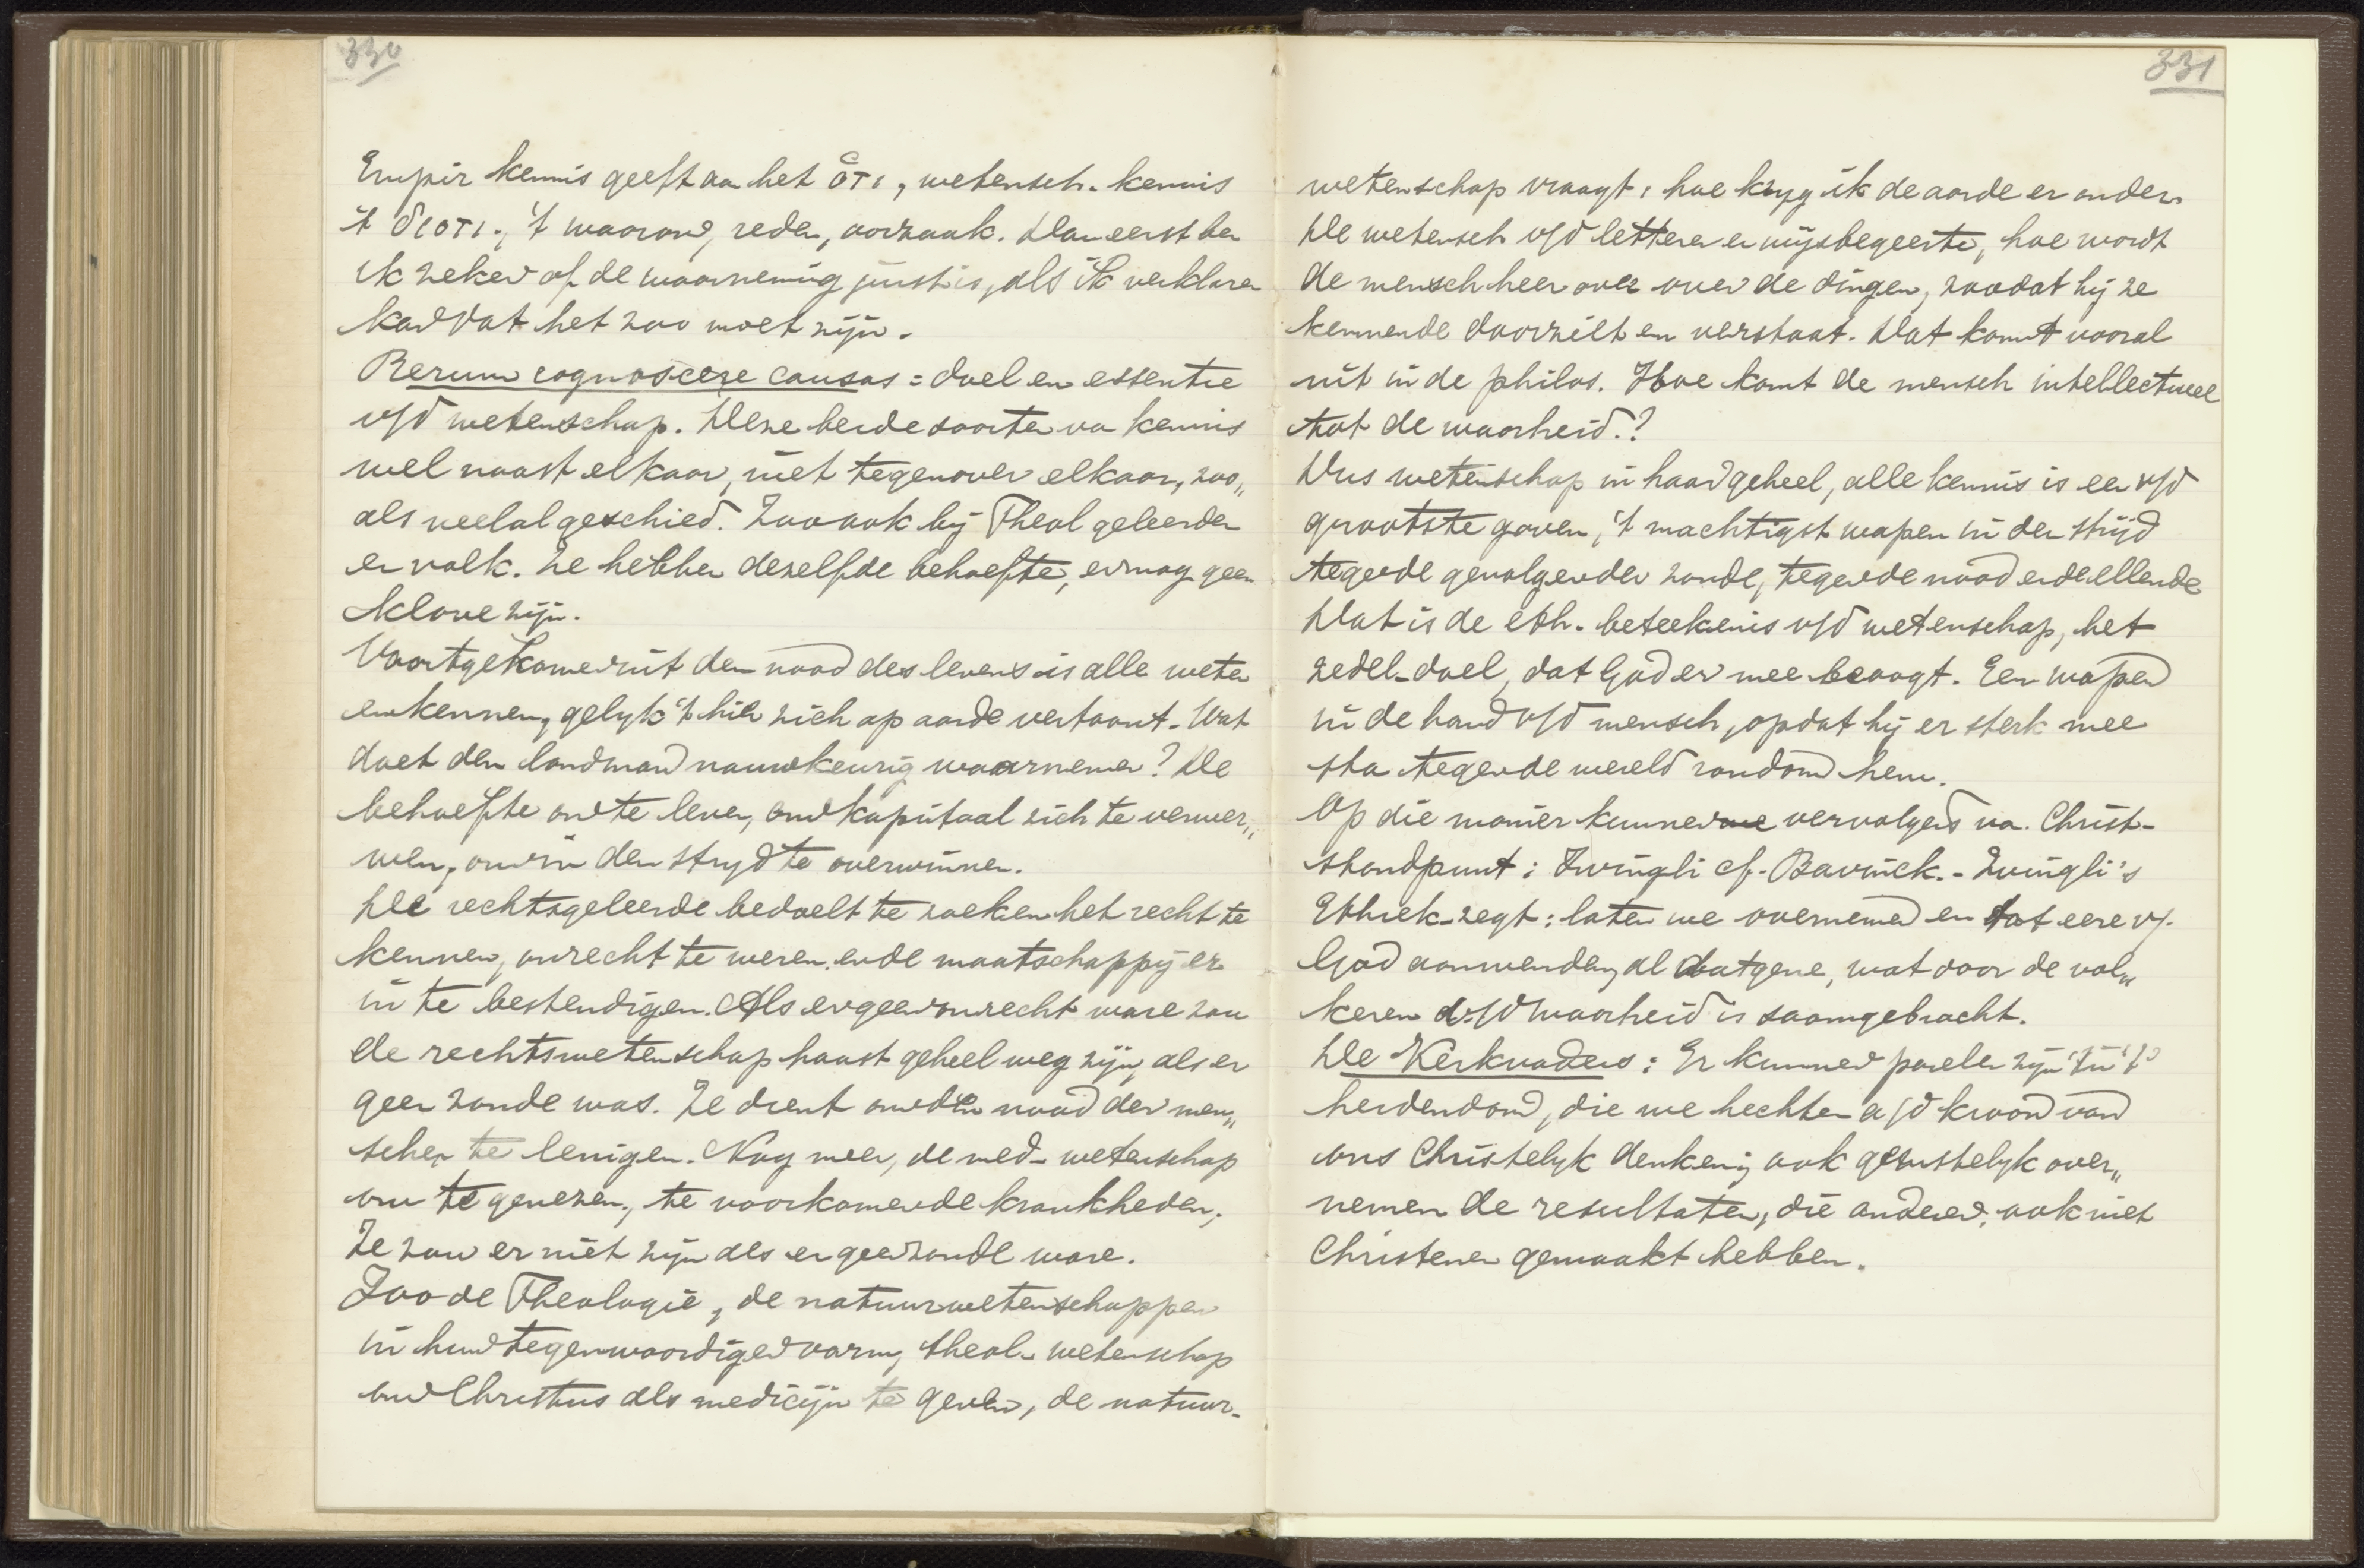 330
Empir kennis geeft aan het ὅτι, wetensch. kennis
't διοτι., 't waarom, reden, oorzaak. Dan eerst ben
ik zeker of de waarneming juist is, als ik verklaren
kan dat het zoo moet zijn.
Rerum cognoscere causas = doel en essentie
v/d wetenschap. Deze beide soorten van kennis
wel naast elkaar, niet tegenover elkaar, zoo„
als veelal geschied. Zoo ook bij Theol geleerden
en volk. Ze hebben dezelfde behoefte, er mag geen
klove zijn.
Voortgekomen uit den nood des levens is alle weten
en kennen, gelyk 't hier zich op aarde vertoont. Wat
doet den landman nauwkeurig waarnemen? De
behoefte om te leven, om kapitaal zich te verwer„
ven, om in den stryd te overwinnen.
De rechtsgeleerde bedoelt te zoeken het recht te
kennen, onrecht te weren en de maatschappij er
in te bestendigen. Als er geen onrecht ware zou
de rechtswetenschap haast geheel weg zijn, als er
geen zonde was. Ze dient om den nood der men„
schen te lenigen. Nog meer, de med. wetenschap
om te genezen, te voorkomen de krankheden,
Ze zou er niet zijn als er geen zonde ware.
Zoo de Theologie, de natuurwetenschappen
in hun tegenwoordigen vorm, theol. wetenschap
om Christus als medicijn te geven, de natuur-
331
wetenschap vraagt: hoe kryg ik de aarde er onder.
De wetensch v/d letteren en wijsbegeerte, hoe wordt
de mensch heer over over de dingen, zoodat hij ze
kennende doorziet en verstaat. Dat komt vooral
uit in de philos. Hoe komt de mensch intellectueel
tot de waarheid.?
Dus wetenschap in haar geheel, alle kennis is een v/d
grootste gaven, 't machtigst wapen in den strijd
tegen de gevolgen der zonde, tegen de nood en de ellende
Dat is de eth. beteekenis v/d wetenschap, het
zedel. doel, dat God er mee beoogt. Een wapen
in de hand v/d mensch, opdat hij er sterk mee
sta tegen de wereld rondom hem.
Op die manier kunnen we vervolgens van Christ-
standpunt: Zwingli cf. Bavinck. - Zwingli's
Ethiek - zegt: laten we overnemen en tot eere v.
God aanwenden, al datgene, wat door de vol„
keren v/d waarheid is saamgebracht.
De Kerkvaders: Er kunnen parelen zijn in 't
heidendom, die we hechten a/d kroon van
ons Christelyk denken, ook gerustelyk over„
nemen de resultaten, die anderen, ook niet
Christenen gemaakt hebben.